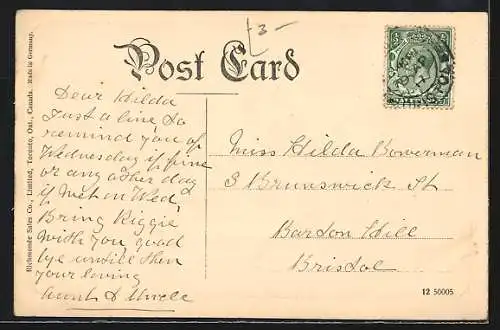 3 -
Post Card
Dear Hilda
Just a line to
remind you of
Wednesday if fine
or any other day
if wet on Wed,
Bring Kiggie
with you, good
bye untill then
your loving
Aunt & Uncle
Miss Hilda Bowerman
3 Brunswick St
Barton Hill
Bristol
Richmonde Sales Co., Limited, Toronto, Ont., Canada. Made in Germany.
12 50005